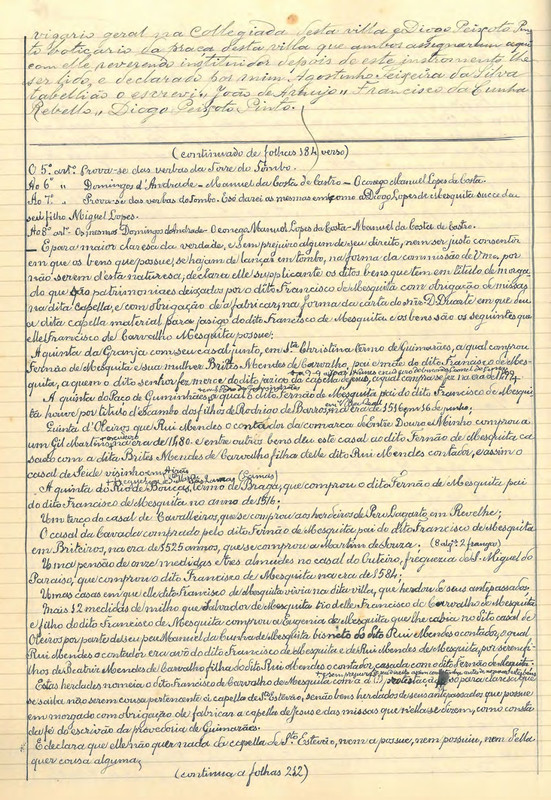 vigario geral na Collegiada desta villa e Diogo Peixoto Pin
to boticario da praça desta villa que ambos assignaram aqui
com elle reverendo instituidor depois de este instrumento lhe
ser lido, e declarado por mim Agostinho Teixeira da Silva
tabellião o escrevi" João de Araujo" Francisco da Cunha
Rebello" Diogo Peixoto Pinto.
(continuado de folhas 184 verso)
O 5º artº Prova-se das verbas da Torre do Tombo.
Ao 6º " Domingos d'Andrade - Manuel da Costa de Castro - O conego Manuel Lopes da Costa.
Ao 7º " Prova-se das verbas do Tombo. E só darei as mesmas em como a Diogo Lopes de Mesquita succedeu
seu filho Miguel Lopes.
Ao 8º artº Os mesmos Domingos de Andrade - O conego Manuel Lopes da Costa - Manuel da Costa de Castro.
— E para maior clareza da verdade, e sem prejuizo algum de seu direito, nem ser justo consentir
em que os bens que possue, se hajam de lançar em tombo, na forma da commissão de Vme, por
não serem d'esta natureza, declara elle supplicante os ditos bens que tem em titulo de morga
do que são patrimoniaes deixados por o dito Francisco de Mesquita com obrigação de missas
na dita capella, e com obrigação de a fabricar, na forma da carta do snr D. Duarte em que deu
a dita capella material para jazigo do dito Francisco de Mesquita e os bens são os seguintes que
elle Francisco de Carvalho Mesquita possue:
A quinta da Granja com seu casal junto, em Stª Christina termo de Guimarães, a qual comprou
Fernão de Mesquita e sua mulher Brites Mendes de Carvalho, pai e mãe do dito Francisco de Mes-
quita, a quem o dito senhor fez merce do dito jazigo da capella de Jesus, a qual compra se fez na era de 1494.
A quinta do Paço de Guminhães, a qual o dito Fernão de Mesquita pai do dito Francisco de Mesqui
ta houve por titulo d'escambo dos filhos de Rodrigo de Barros, na era de 1516 em 16 de junho;
Quinta d'Oleiros que Rui Mendes o contador da comarca de Entre Douro e Minho comprou a
um Gil Martins, na era de 1480. E entre outros bens deu este casal ao dito Fernão de Mesquita ca
sado com a dita Brites Mendes de Carvalho filha delle dito Rui Mendes contador, e assim o
casal de Seide visinho em
A quinta do Rio de Bouças, termo de Braga, que comprou o dito Fernão de Mesquita pai
do dito Francisco de Mesquita no anno de 1516;
Um terço do casal de Cavalleiros, que se comprou aos herdeiros de Pero Lagarto, em Revelhe;
O casal da Cavada comprado pelo dito Fernão de Mesquita pai do dito Francisco de Mesquita
em Briteiros, na era de 1525 annos, que se comprou a Martim de Souza. (8 alqs 2 frangos)
Uma pensão de onze medidas e tres almudes no casal do Outeiro, freguezia de S. Miguel do
Paraiso, que comprou o dito Francisco de Mesquita na era de 1584;
Umas casas em que elle dito Francisco de Mesquita vivia na dita villa, que herdou de seus antepassados.
Mais 12 medidas de milho que Salvador de Mesquita tio delle Francisco de Carvalho de Mesquita
e filho do dito Francisco de Mesquita comprou a Eugenia de Mesquita que lhe cabia no dito casal de
Oleiros por parte de seu pae Manuel da Cunha de Mesquita bisneto do dito Rui Mendes o contador, o qual
Rui Mendes o contador era avô do dito Francisco de Mesquita e de Rui Mendes de Mesquita, por serem fi-
lhos de Beatriz Mendes de Carvalho filha do dito Rui Mendes o contador, casada com o dito Fernão de Mesquita.
Estas herdades nomeia o dito Francisco de Carvalho de Mesquita com a d. protestação só para clareza que
se saiba não serem cousa pertencente á capella de Stº Estevão, senão bens herdados de seus antepassados, que possue
em morgado com obrigação de fabricar a capella de Jesus e das missas que nella se dizem, como consta
da fé do escrivão da provedoria de Guimarães.
E declara que elle não quer nada da capella de Stº Estevão, nem a possue, nem possuiu, nem d'ella
quer cousa alguma;
(continua a folhas 212)